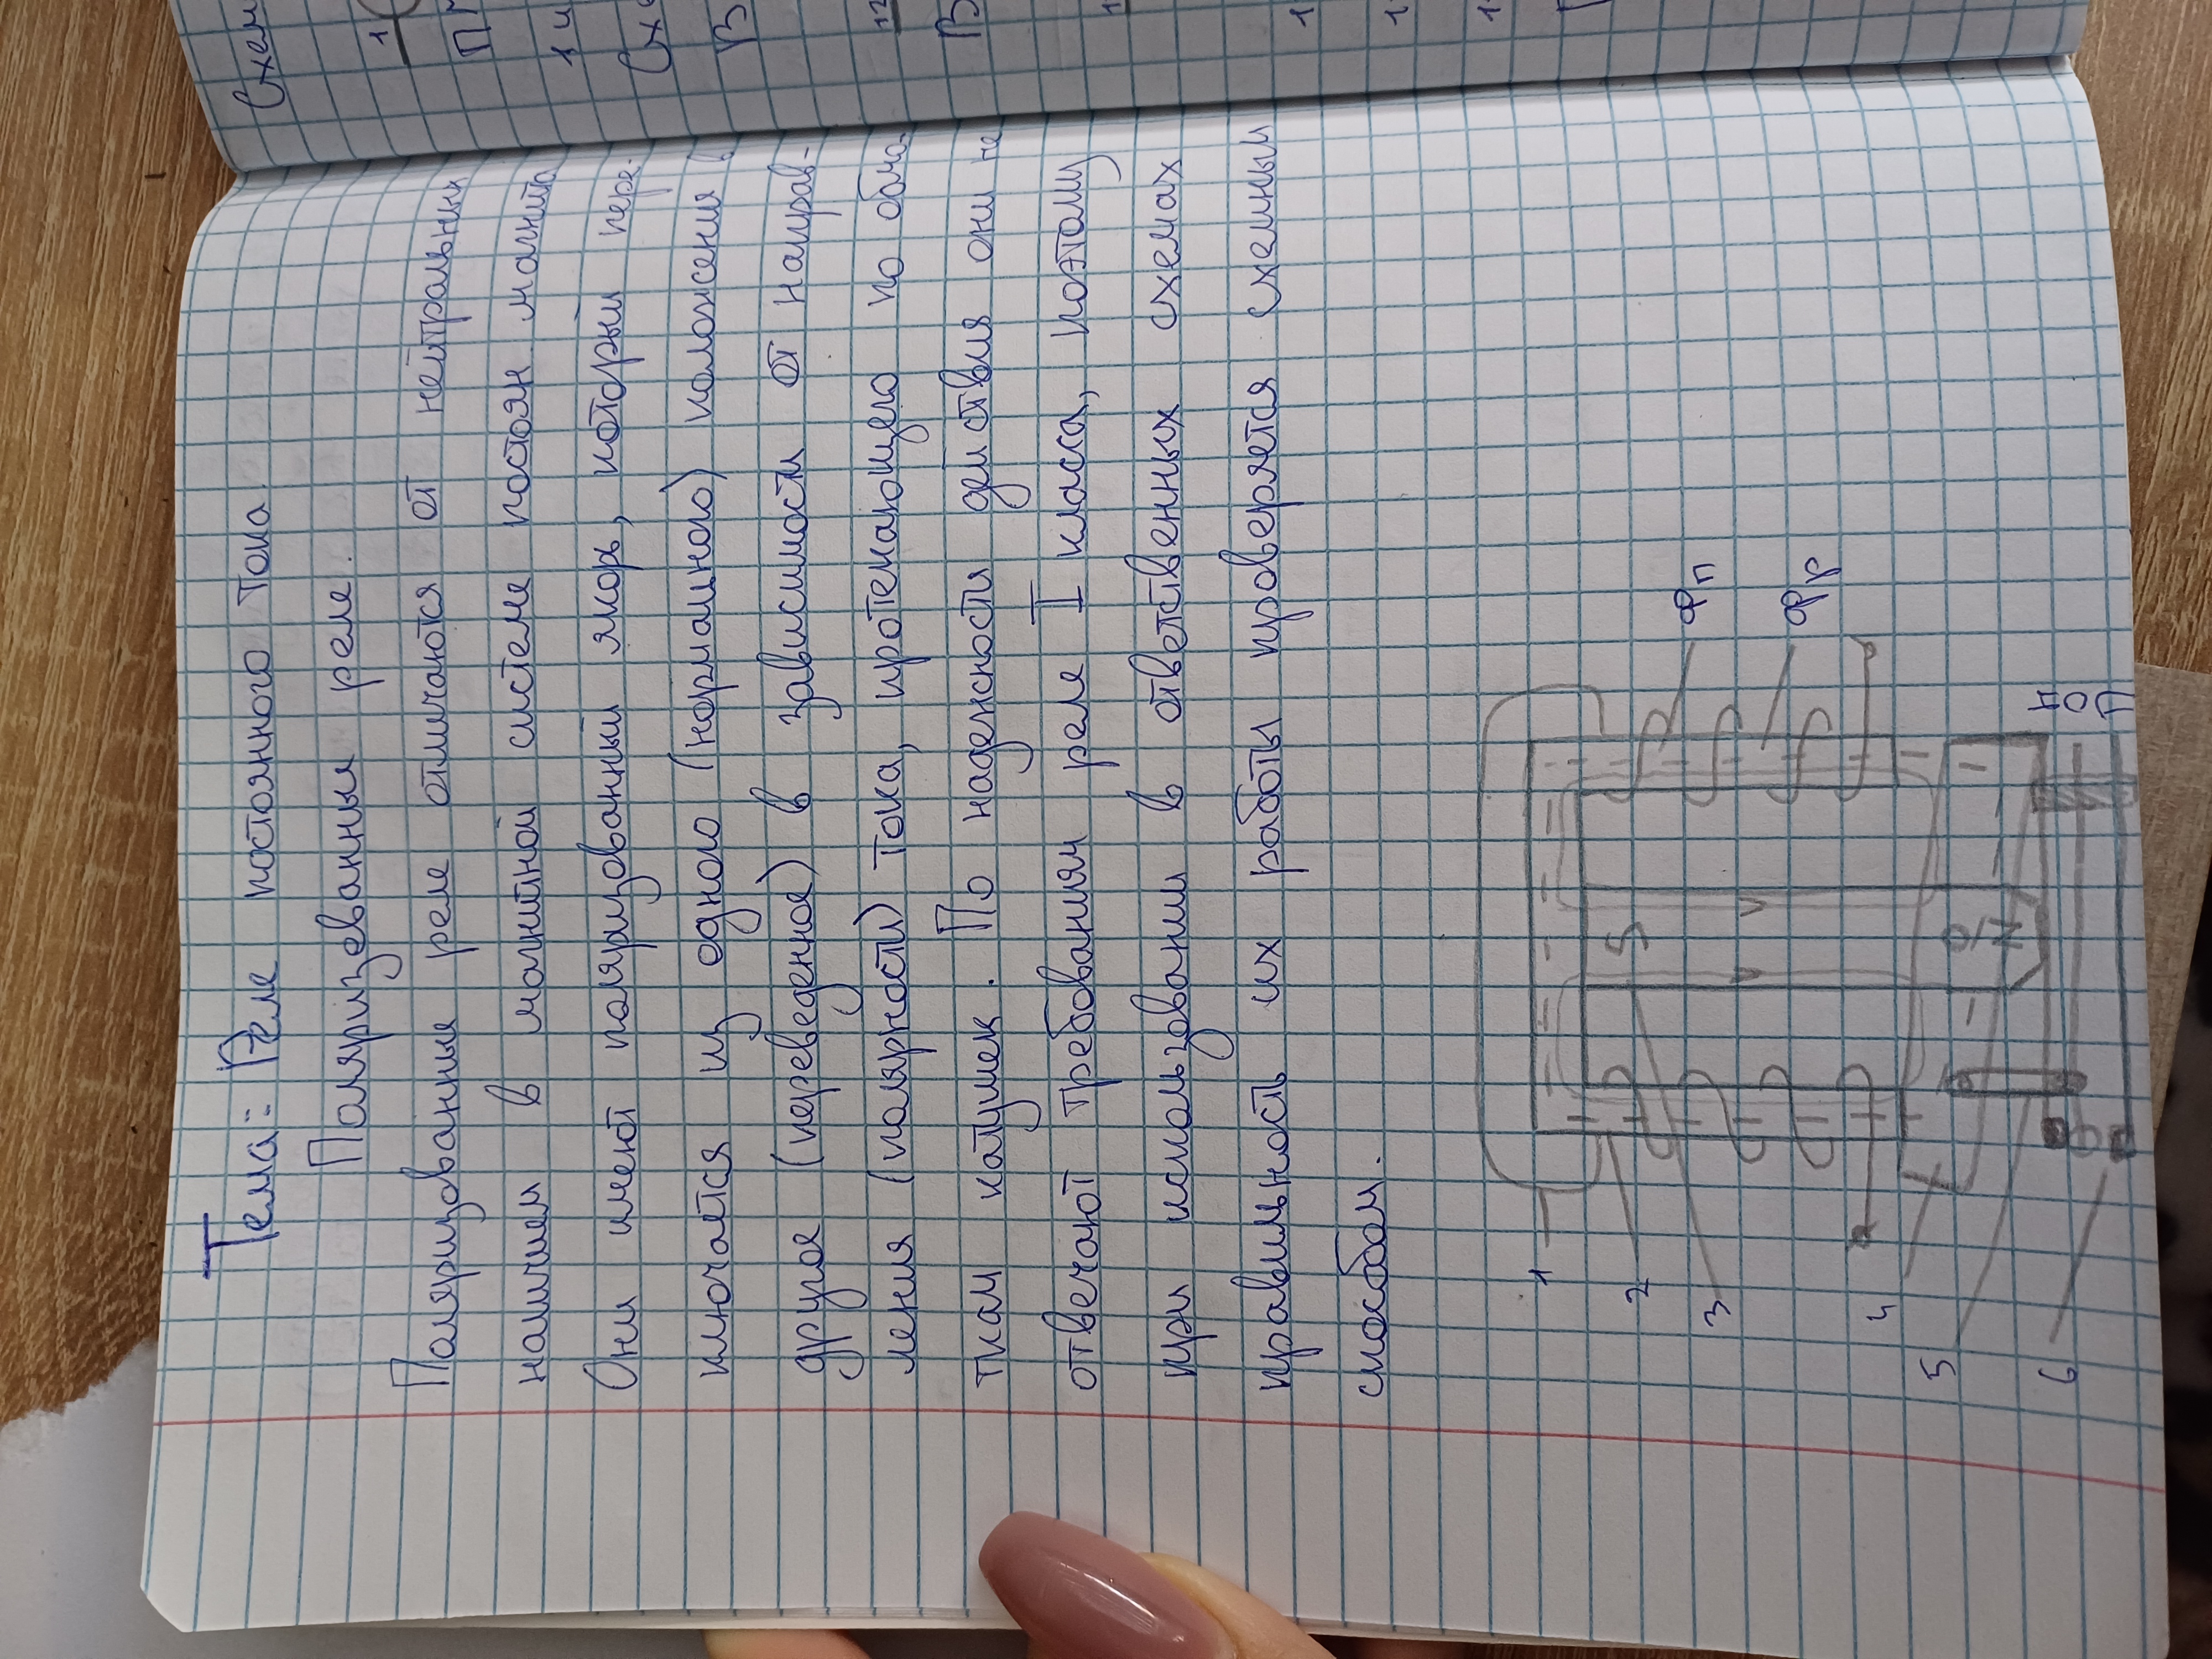 Тема: Реле постоянного тока.
Поляризеванныя реле.
Поляризованные реле отличаются от нейтральных
наличием в магнитной системе постоян. магнита
Они имеют поляризованный якорь, который пере-
ключается из одного (нормального) положения в
другое (переведенное) в зависимости от направ-
ления (полярности) тока, протекающего по обмо-
ткам катушек. По надежности действия они не
отвечают требованиям реле I класса, поэтому
при использовании в ответственных схемах
правильность их работы проверяется схемным
способом.
1
2
3
4
5
6
Фп
Фр
S
N
Н
О
П
Схем
1
1 и
Схе
В
12
В
1
1
1